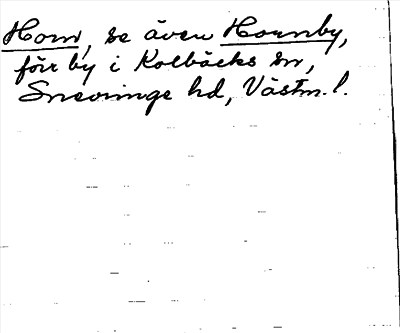 Horn, se även Hornby,
förr by i Kolbäcks sn,
Snevringe hd, Västm. l.